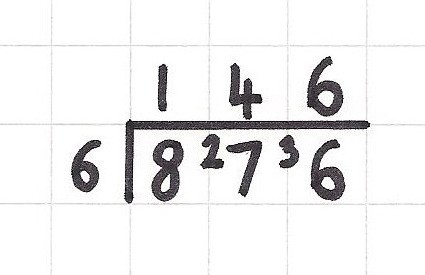 1 4 6
6 8 2 7 3 6